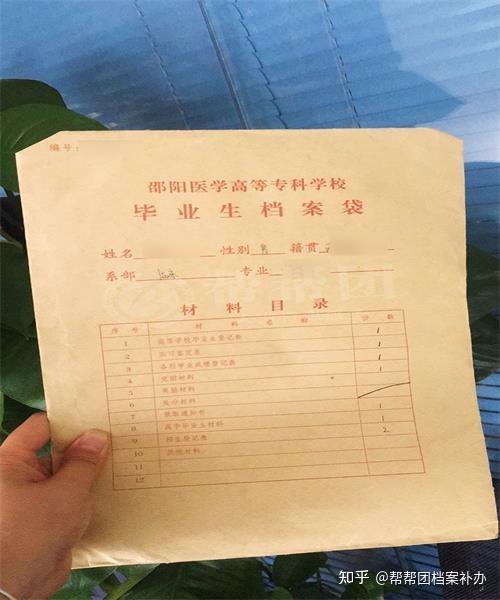 编号：
邵阳医学高等专科学校
毕业生档案袋
姓名 性别 男 籍贯
系部 临床 专业
材料目录
序号 材料名称 份数
1 高等学校毕业生登记表 1
2 实习鉴定表 1
3 各科学业成绩登记表 1
4 党团材料
5 奖励材料
6 处分材料
7 录取通知书 1
8 高中毕业生材料 1
9 招生登记表 2
10 其他材料
11
12
帮帮团
知乎 @帮帮团档案补办